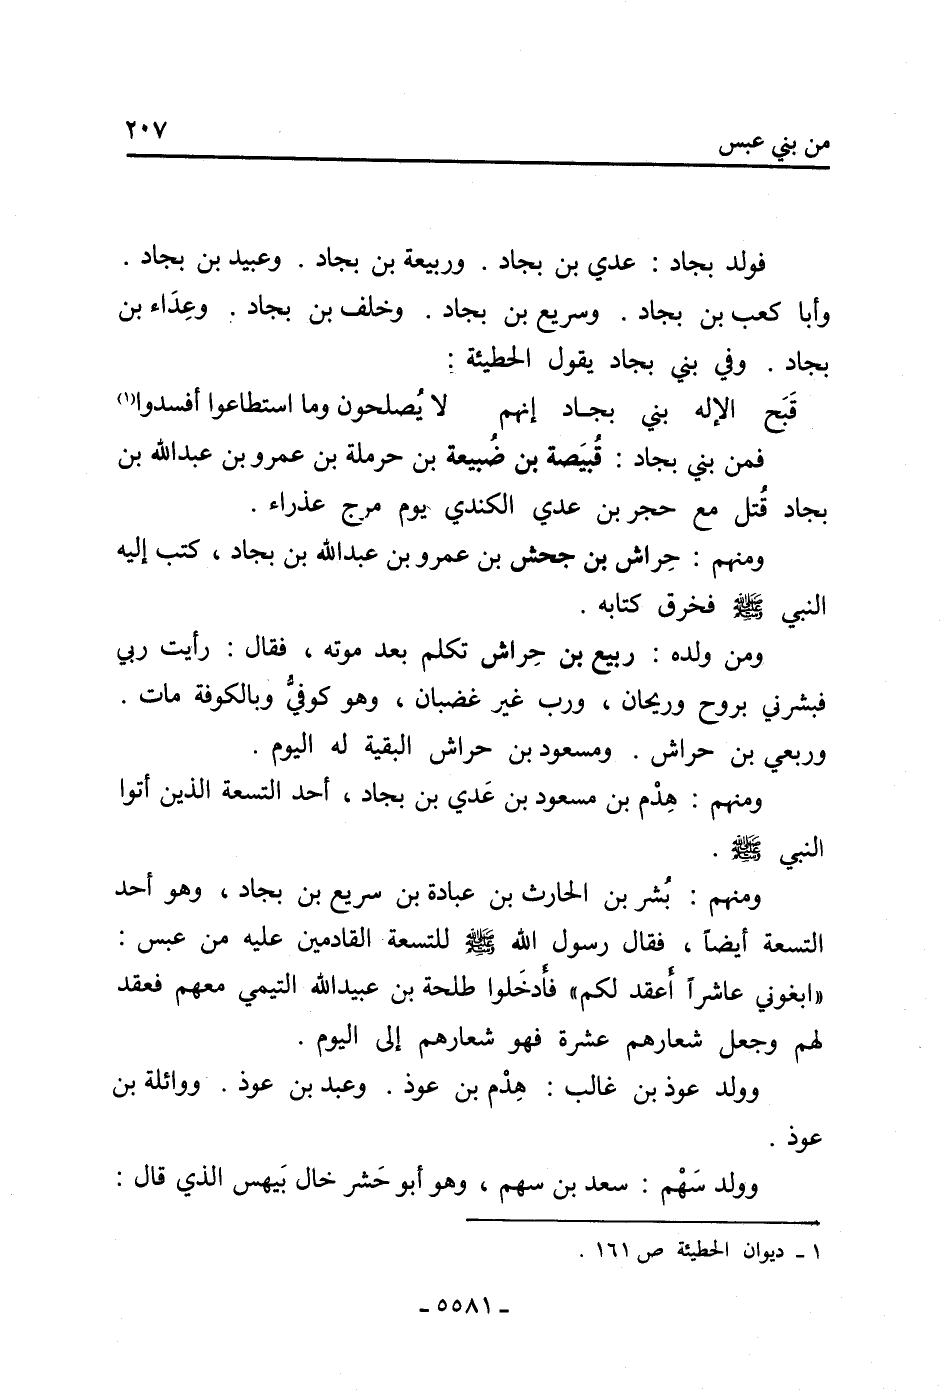 من بني عبس ٢٠٧
فولد بجاد : عدي بن بجاد . وربيعة بن بجاد . وعبيد بن بجاد .
وأبا كعب بن بجاد . وسريع بن بجاد . وخلف بن بجاد . وعِدَاء بن
بجاد . وفي بني بجاد يقول الحطيئة :
قَبَح الإله بني بجـاد إنهم لا يُصلحون وما استطاعوا أفسدوا(١)
فمن بني بجاد : قُبَيَصة بن ضُبيعة بن حرملة بن عمرو بن عبدالله بن
بجاد قُتل مع حجر بن عدي الكندي يوم مرج عذراء .
ومنهم : حِراش بن جحش بن عمرو بن عبدالله بن بجاد ، كتب إليه
النبي ﷺ فخرق كتابه .
ومن ولده : ربيع بن حِراش تكلم بعد موته ، فقال : رأيت ربي
فبشرني بروح وريحان ، ورب غير غضبان ، وهو كوفيُّ وبالكوفة مات .
وربعي بن حراش . ومسعود بن حراش البقية له اليوم .
ومنهم : هِدْم بن مسعود بن عَدي بن بجاد ، أحد التسعة الذين أتوا
النبي ﷺ .
ومنهم : بُشر بن الحارث بن عبادة بن سريع بن بجاد ، وهو أحد
التسعة أيضاً ، فقال رسول الله ﷺ للتسعة القادمين عليه من عبس :
«ابغوني عاشراً أعقد لكم» فأدخَلوا طلحة بن عبيدالله التيمي معهم فعقد
لهم وجعل شعارهم عشرة فهو شعارهم إلى اليوم .
وولد عوذ بن غالب : هِدْم بن عوذ . وعبد بن عوذ . ووائلة بن
عوذ .
وولد سَهْم : سعد بن سهم ، وهو أبو حَشر خال بَيهس الذي قال :
١ ـ ديوان الحطيئة ص ١٦١ .
ـ ٥٥٨١ ـ